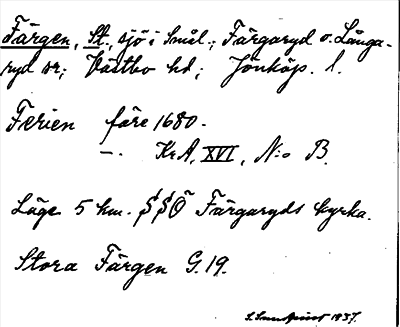 Färgen, St., sjö i Smål.; Färgaryd o. Långa-
ryd snr; Västbo hd; Jönköp. l.
Ferien före 1680.
—. KrA, XVI, N:o B.
Läge 5 km. SSÖ Färgaryds kyrka.
Stora Färgen G.19.
S. Sundqvist 1937.